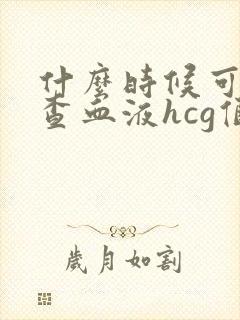 什麼時候可
查血液hcg值
歲月如割